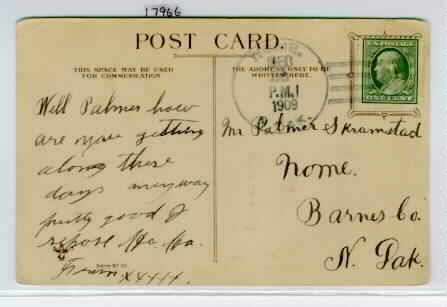 17966
POST CARD.
THIS SPACE MAY BE USED
FOR COMMUNICATION
THE ADDRESS ONLY TO BE
WRITTEN HERE.
P.M.
1909
Well Palmer how
are you getting
along these
days anyway
pretty good I
repose Ha. Ha.
From XXXXX.
Mr Palmer Skramstad
Nome.
Barnes Co.
N. Dak.